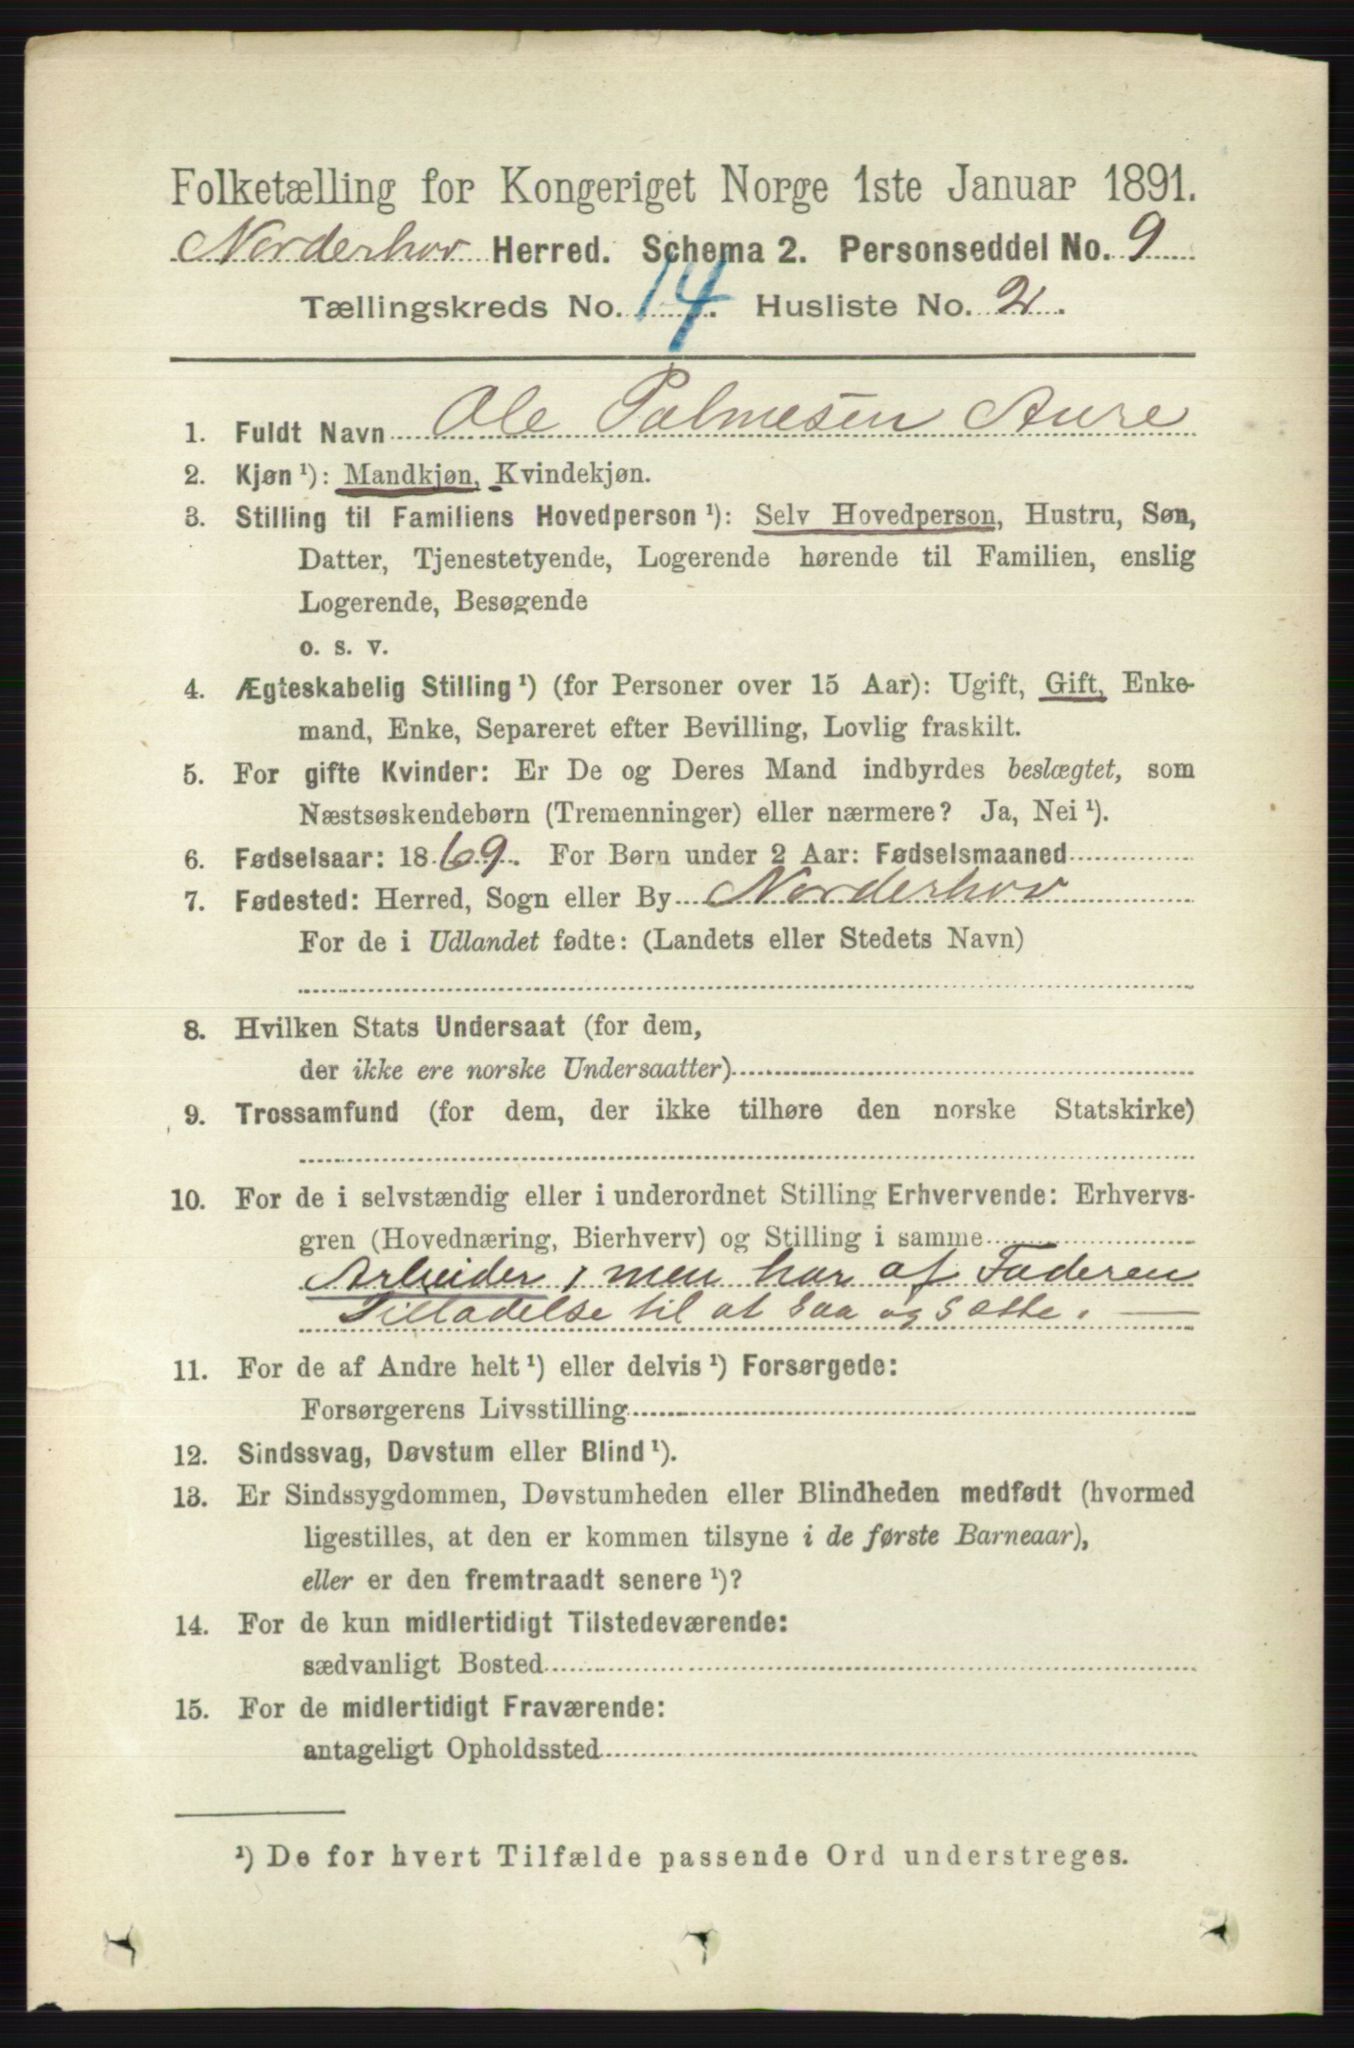 Folketælling for Kongeriget Norge 1ste Januar 1891.
Norderhov Herred. Schema 2. Personseddel No. 9
Tællingskreds No. 14. Husliste No. 2.
1. Fuldt Navn Ole Palmesen Aure
2. Kjøn ¹): Mandkjøn, Kvindekjøn.
3. Stilling til Familiens Hovedperson ¹): Selv Hovedperson, Hustru, Søn,
Datter, Tjenestetyende, Logerende hørende til Familien, enslig
Logerende, Besøgende
o. s. v.
4. Ægteskabelig Stilling ¹) (for Personer over 15 Aar): Ugift, Gift, Enke-
mand, Enke, Separeret efter Bevilling, Lovlig fraskilt.
5. For gifte Kvinder: Er De og Deres Mand indbyrdes beslægtet, som
Næstsøskendebørn (Tremenninger) eller nærmere? Ja, Nei ¹).
6. Fødselsaar: 1869. For Børn under 2 Aar: Fødselsmaaned
7. Fødested: Herred, Sogn eller By Norderhov
For de i Udlandet fødte: (Landets eller Stedets Navn)
8. Hvilken Stats Undersaat (for dem,
der ikke ere norske Undersaatter)
9. Trossamfund (for dem, der ikke tilhøre den norske Statskirke)
10. For de i selvstændig eller i underordnet Stilling Erhvervende: Erhvervs-
gren (Hovednæring, Bierhverv) og Stilling i samme
Arbeider, men har af Faderen
Tilladelse til at saa og sætte.
11. For de af Andre helt ¹) eller delvis ¹) Forsørgede:
Forsørgerens Livsstilling
12. Sindssvag, Døvstum eller Blind ¹).
13. Er Sindssygdommen, Døvstumheden eller Blindheden medfødt (hvormed
ligestilles, at den er kommen tilsyne i de første Barneaar),
eller er den fremtraadt senere ¹)?
14. For de kun midlertidigt Tilstedeværende:
sædvanligt Bosted
15. For de midlertidigt Fraværende:
antageligt Opholdssted
¹) De for hvert Tilfælde passende Ord understreges.